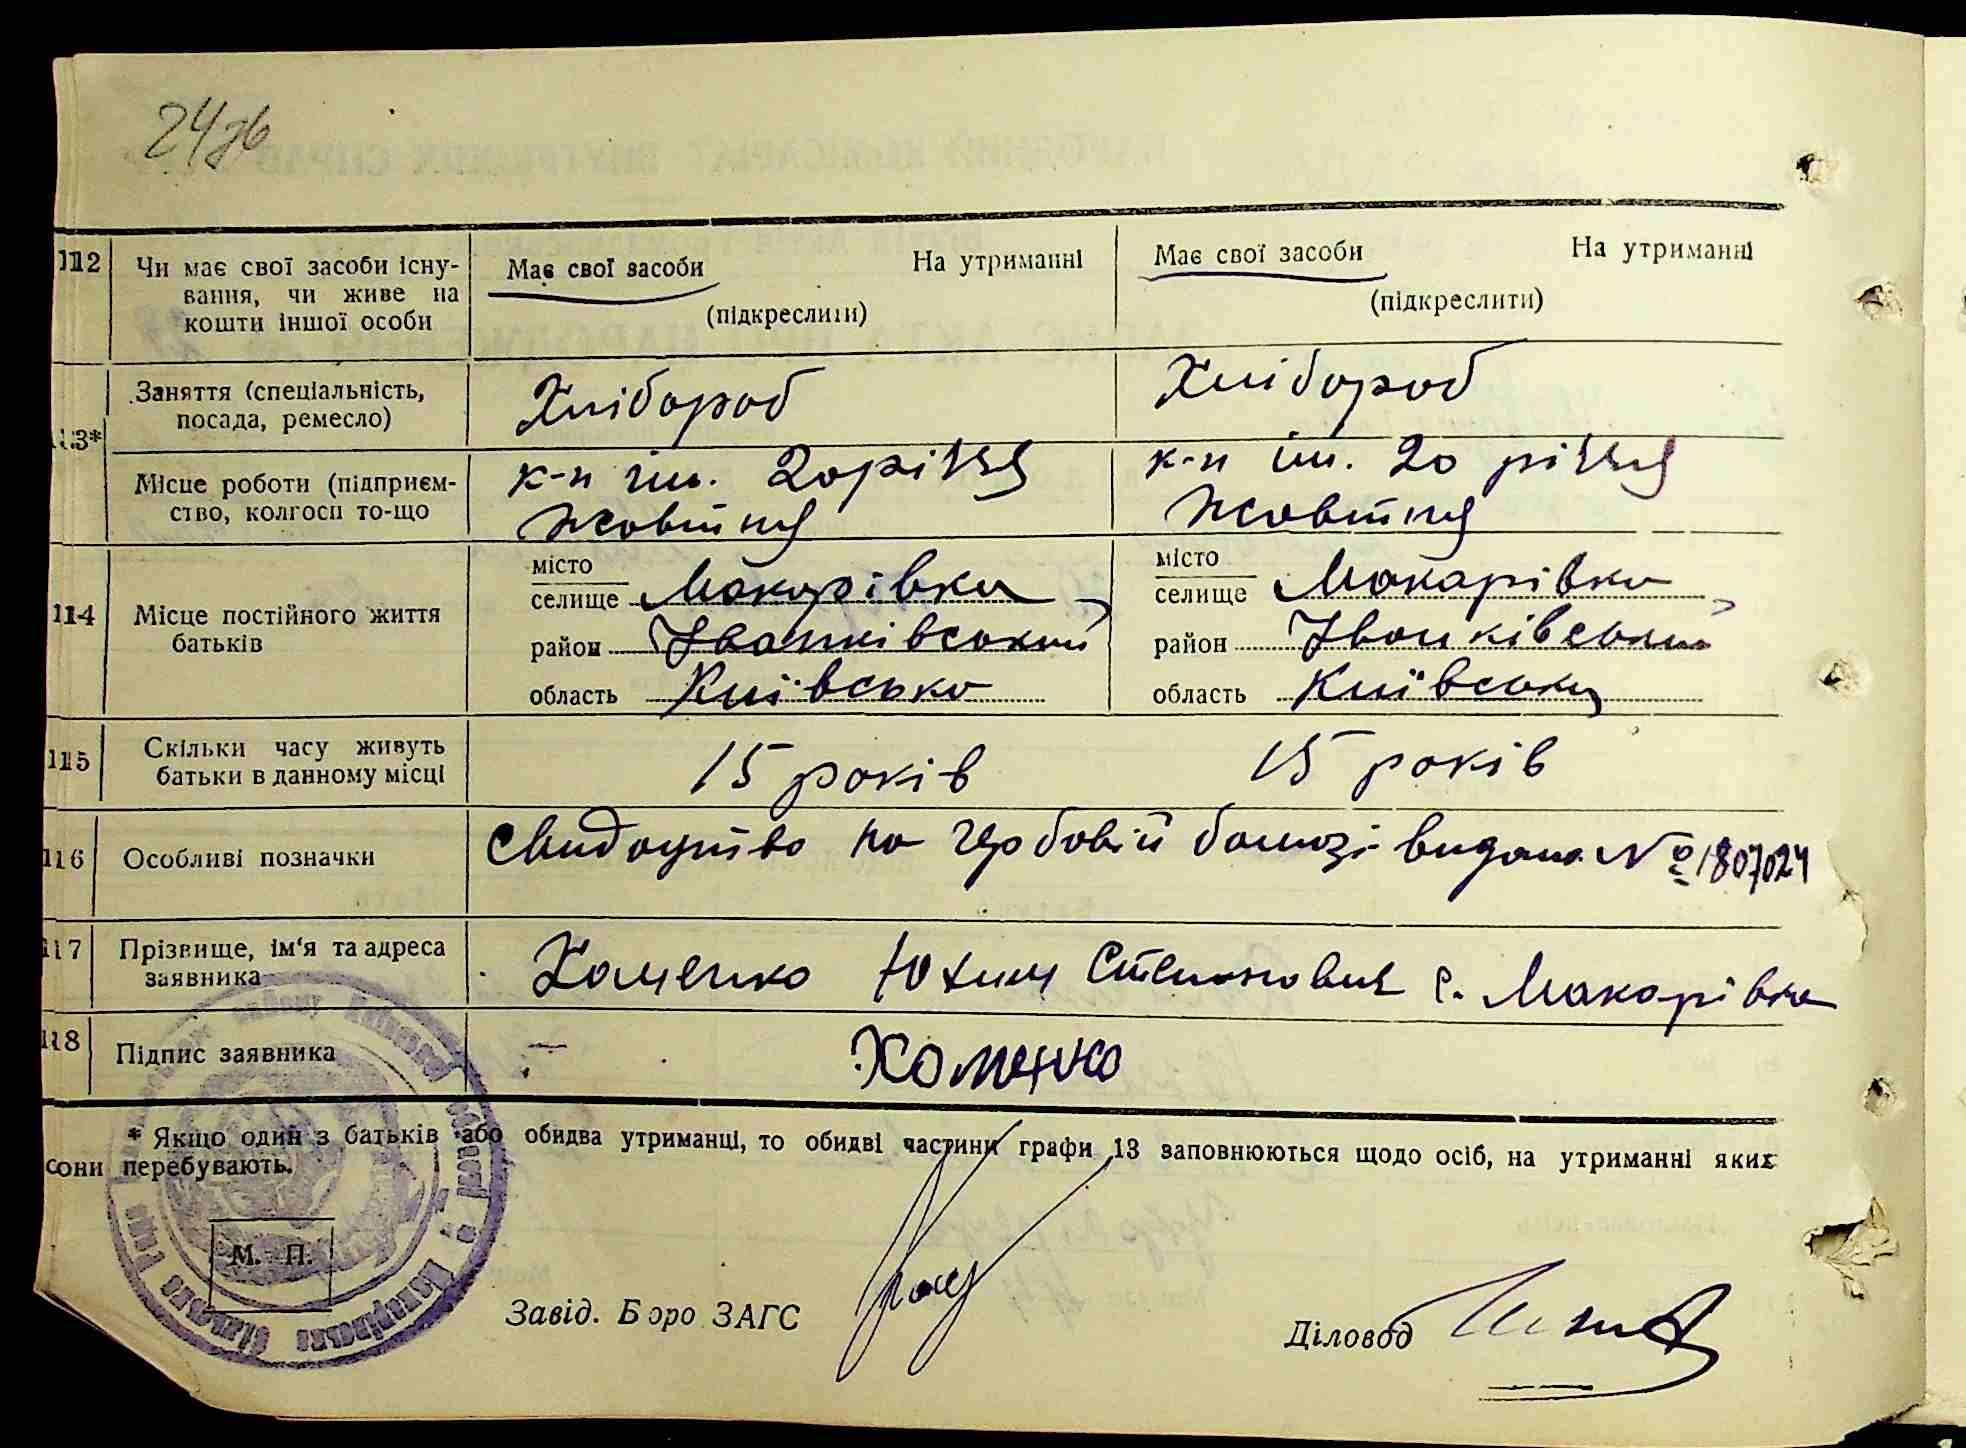 24зв
12 Чи має свої засоби існу- Має свої засоби На утриманні Має свої засоби На утриманні
вання, чи живе на (підкреслити) (підкреслити)
кошти іншої особи
13* Заняття (спеціальність, Хлібороб Хлібороб
посада, ремесло)
Місце роботи (підприєм- к-п ім. 20 річчя к-п ім. 20 річчя
ство, колгосп то-що Жовтня Жовтня
14 Місце постійного життя місто Макарівка місто Макарівка
батьків селище селище
район Іванківський район Іванківський
область Київська область Київська
15 Скільки часу живуть 15 років 15 років
батьки в данному місці
16 Особливі позначки Свидоцтво на гербовій бомазі видано № 1807024
17 Прізвище, ім'я та адреса Хоменко Юхим Степанович с. Макарівка
заявника
18 Підпис заявника Хоменко
* Якщо один з батьків або обидва утриманці, то обидві частини графи 13 заповнюються щодо осіб, на утриманні яких
вони перебувають.
М. П.
Завід. Бюро ЗАГС
Діловод